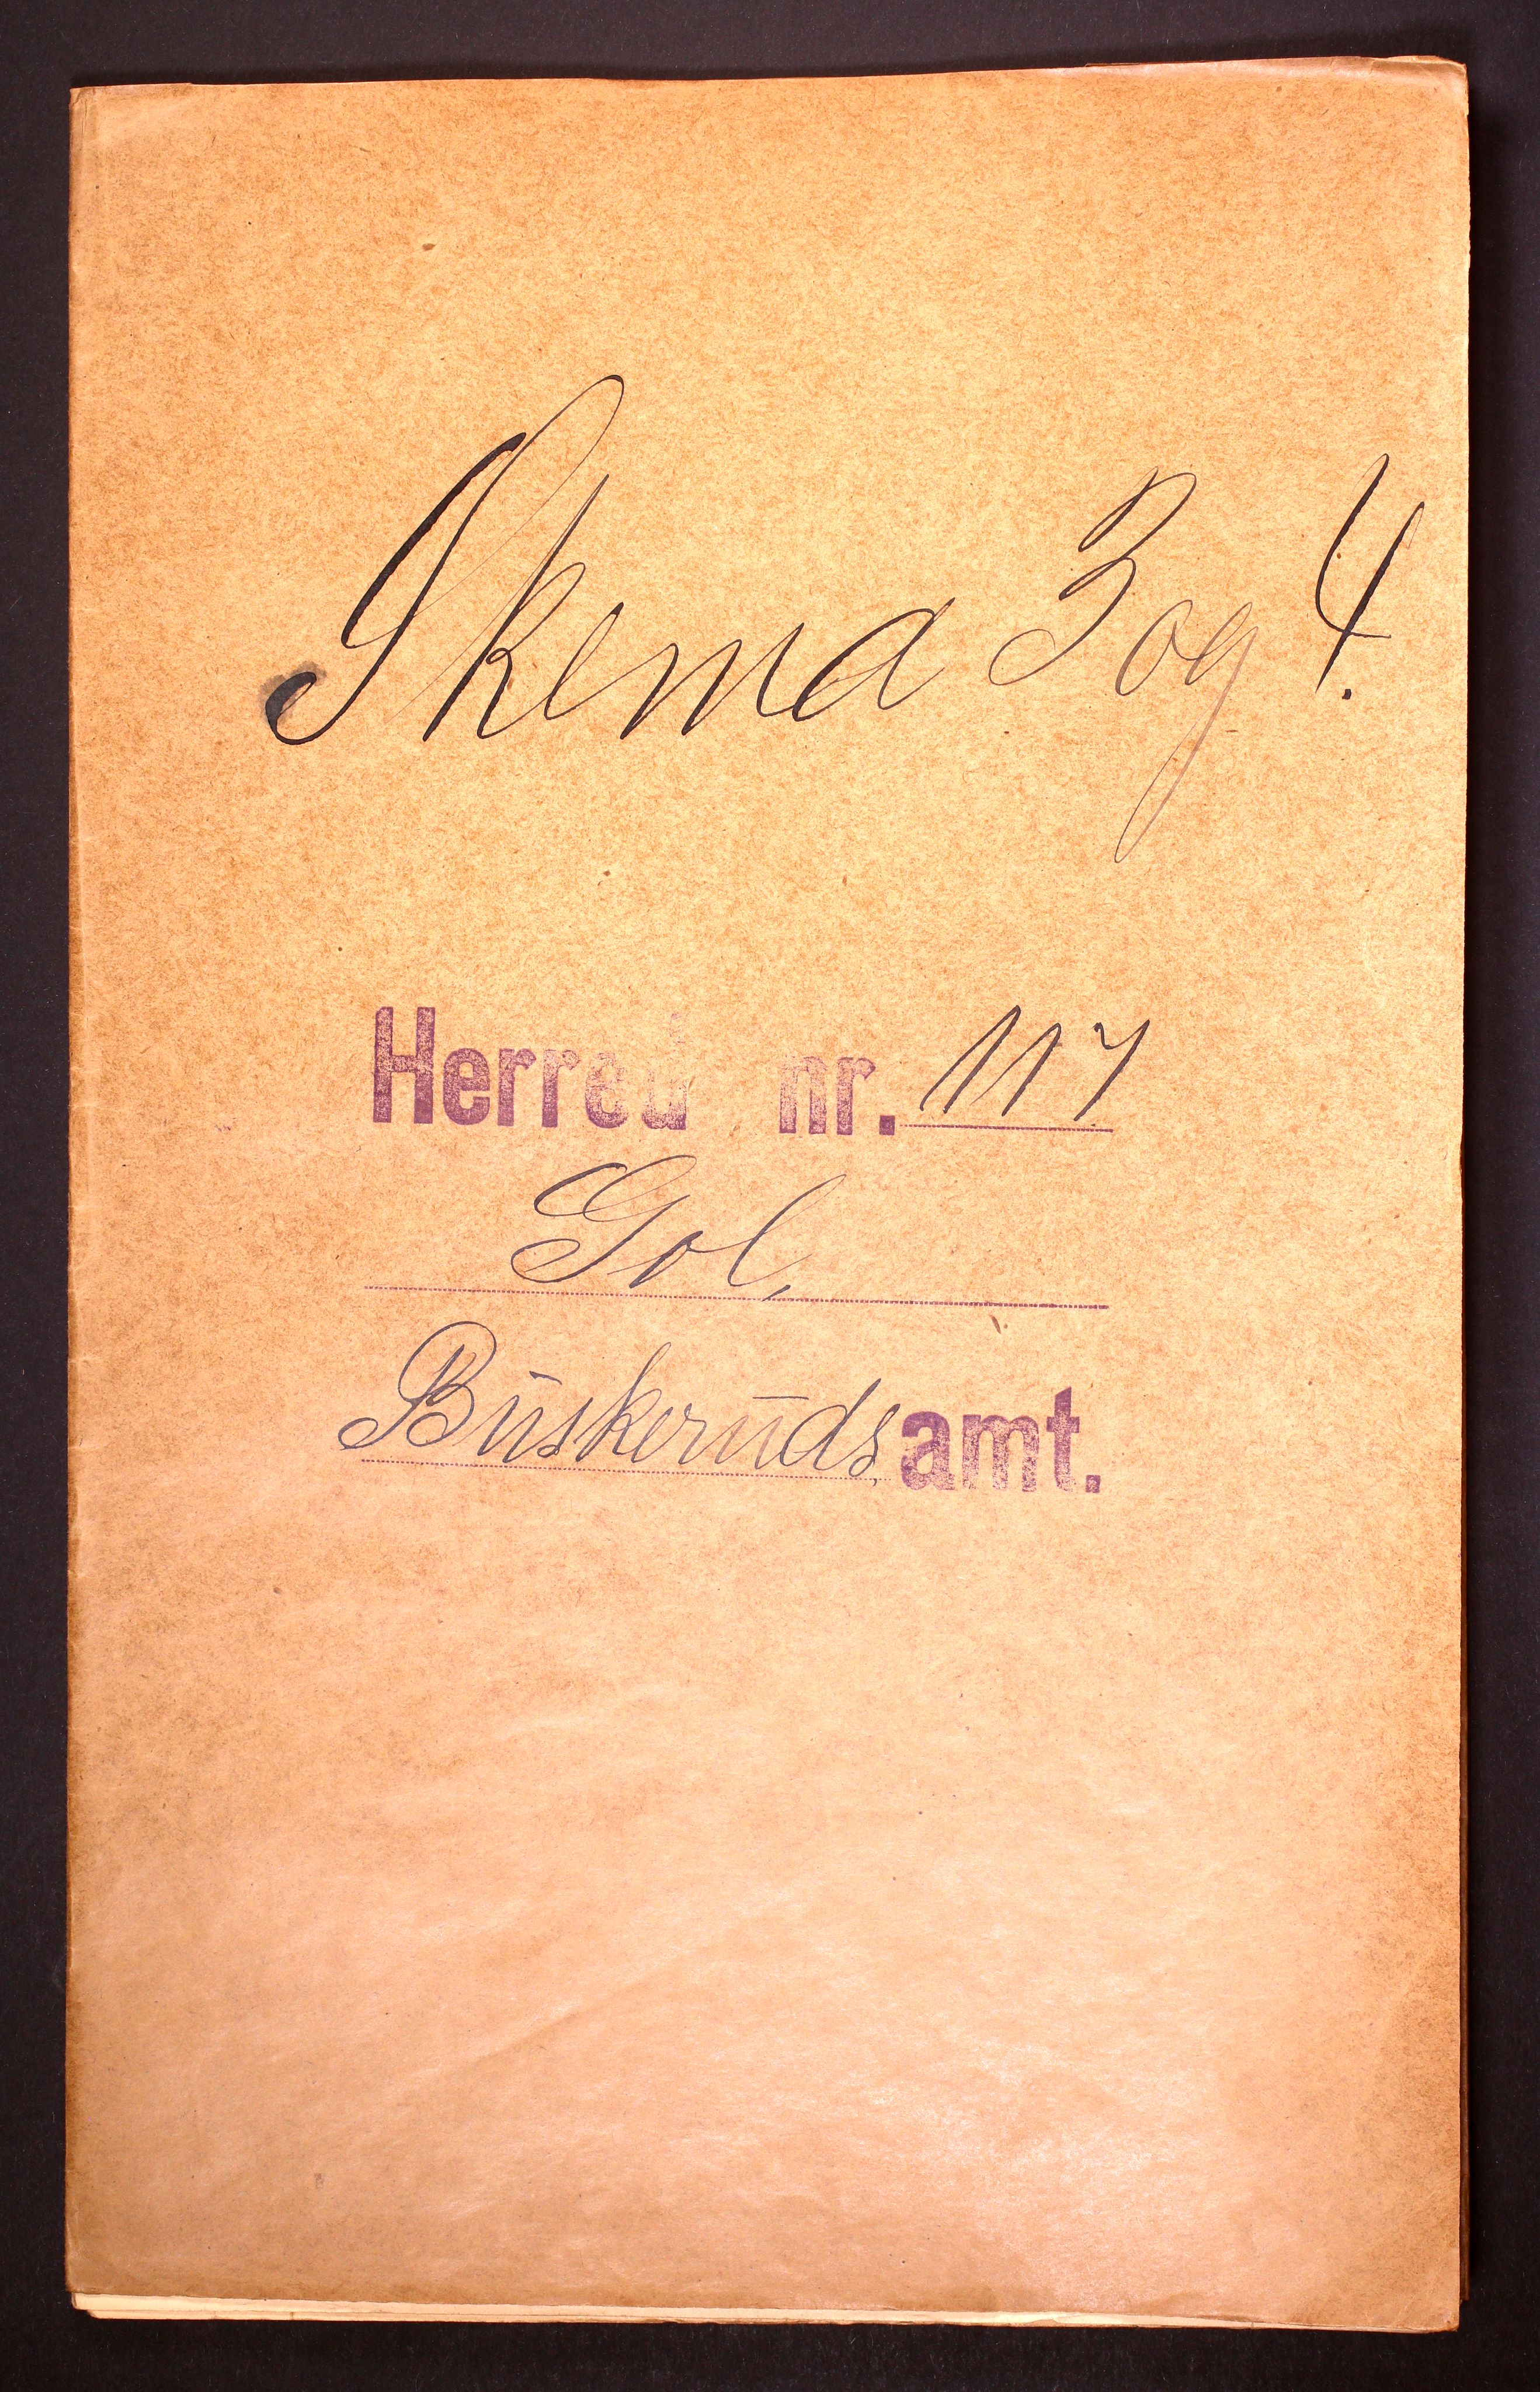 Skema 3 og 4.
Herred nr. 117
Gol,
Buskeruds amt.